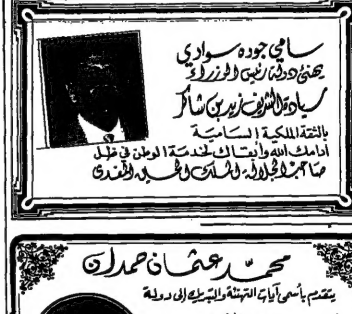 سامي جوده سوادي
يهنئ دولة رئيس الوزراء
سيادة الشريف زيد بن شاكر
بالثقة الملكية السامية
أدامك الله وأبقاك لخدمة الوطن في ظل
صاحب الجلالة الملك الحسين المفدى
محمد عثمان حمدان
يتقدم بأسمى آيات التهنئة والتبريك إلى دولة